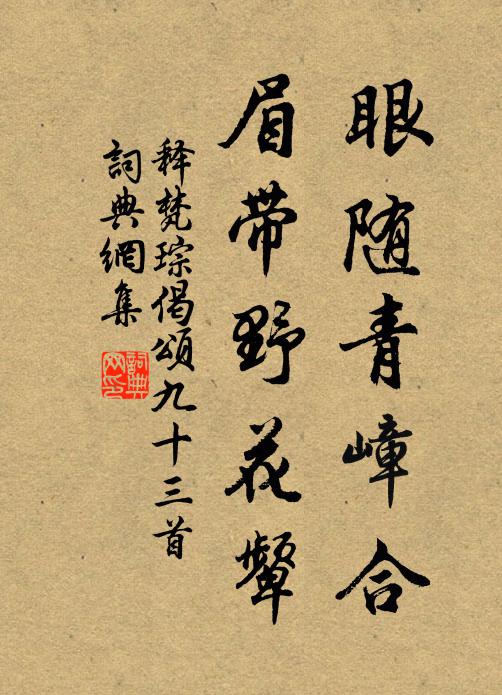 眼随青嶂合
眉带野花颦
释梵琮偈頌九十三首
詞典網集
詞典
网印